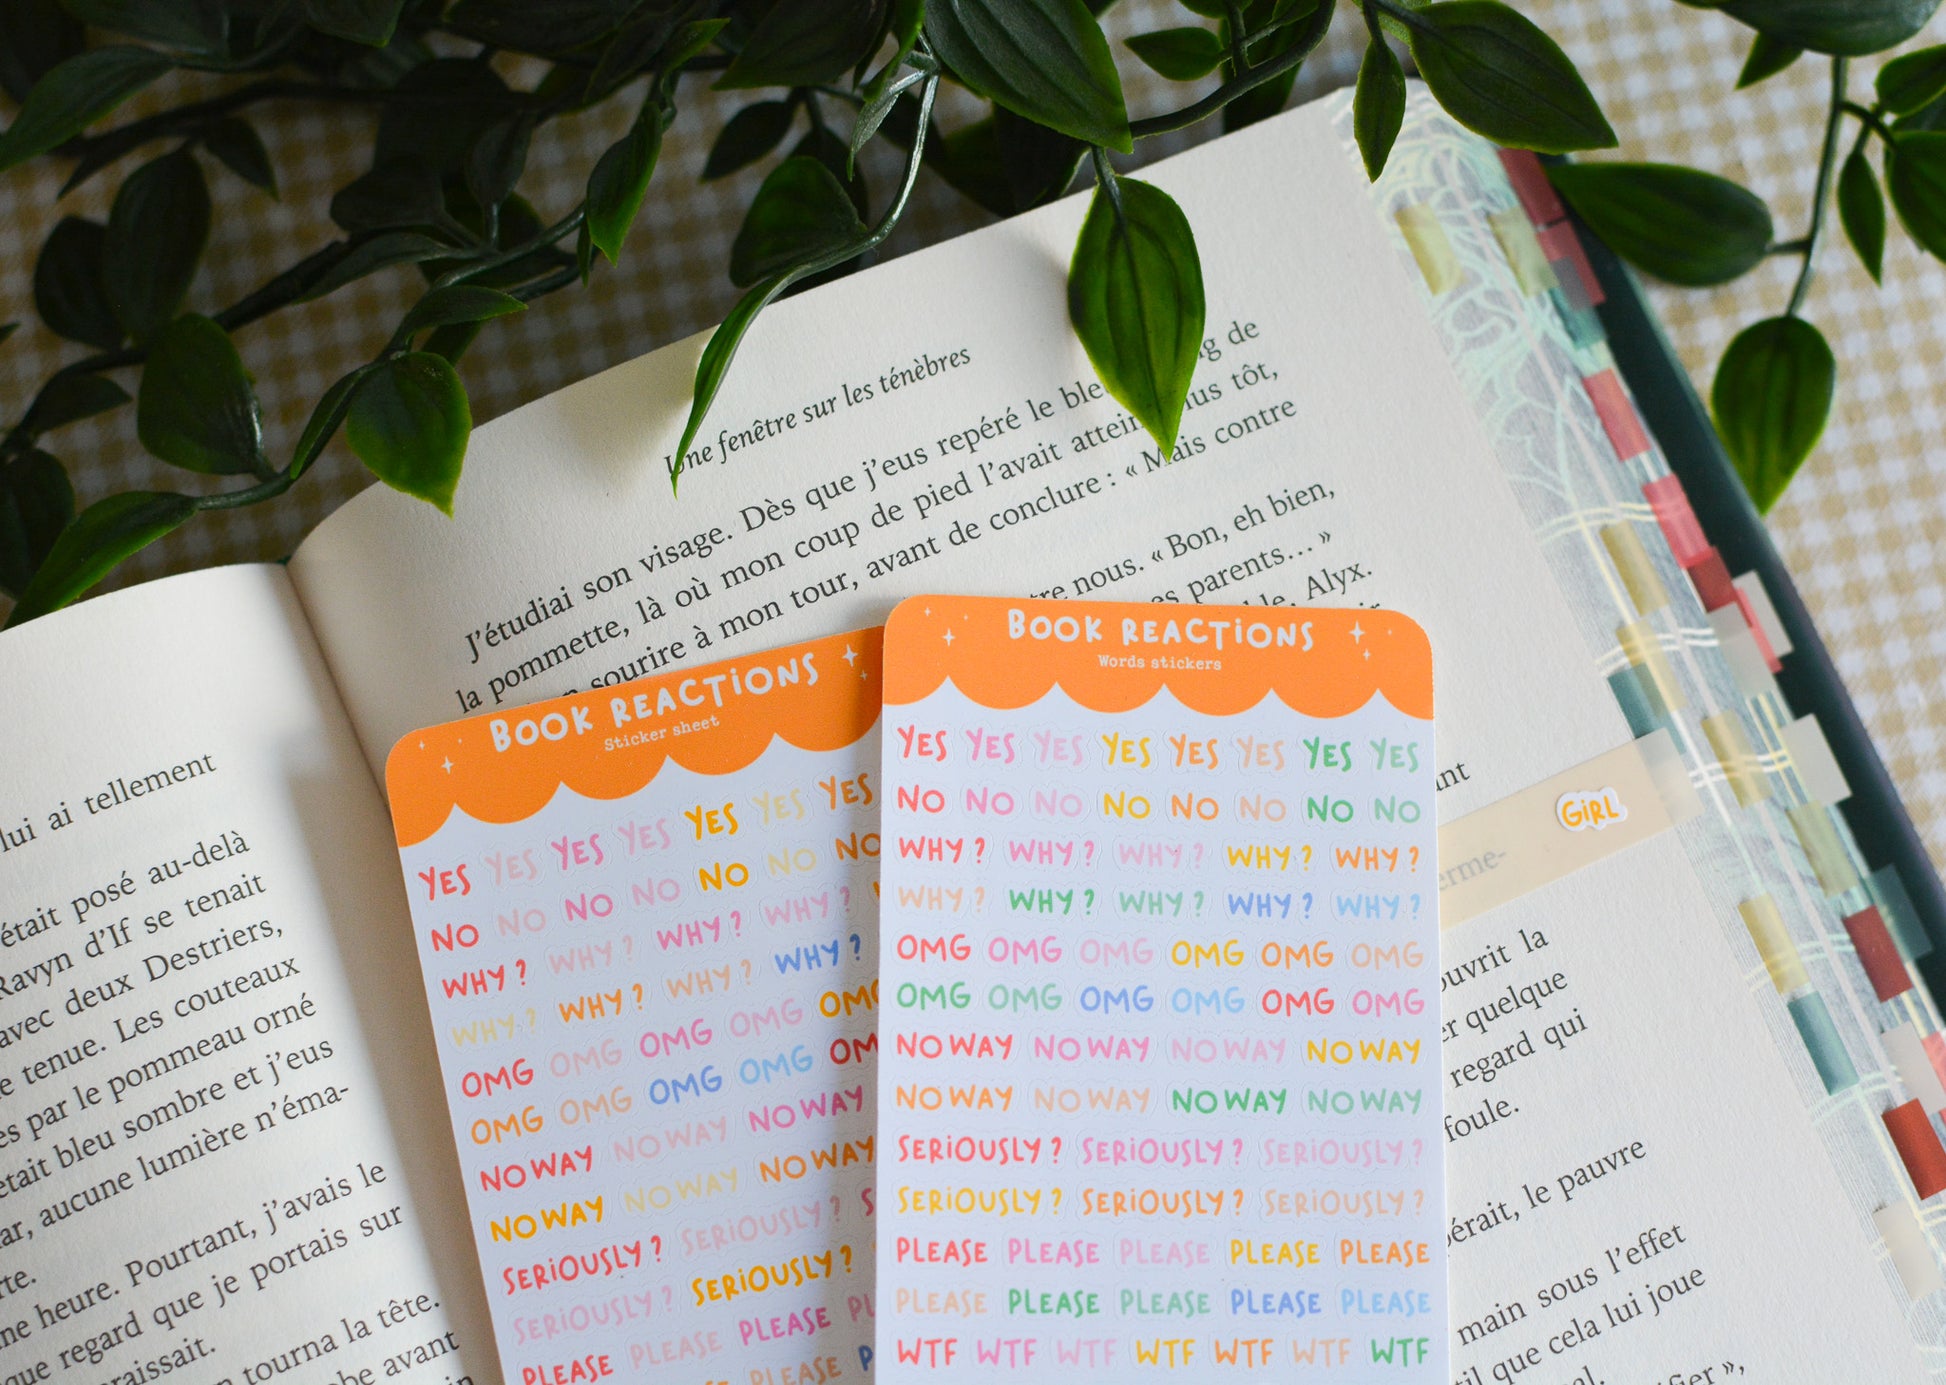 lui ai tellement
était posé au-delà
Ravyn d'If se tenait
avec deux Destriers,
tenue. Les couteaux
par le pommeau orné
était bleu sombre et j'eus
aucune lumière n'éma-
heure. Pourtant, j'avais le
regard que je portais sur
tourna la tête.
avant
Une fenêtre sur les ténèbres
J'étudiai son visage. Dès que j'eus repéré le de
la pommette, là où mon coup de pied l'avait tôt,
sourire à mon tour, avant de conclure : « Mais contre
nous. « Bon, eh bien,
parents... »
Alyx.
GiRL
la
quelque
regard qui
foule.
le pauvre
main sous l'effet
que cela lui joue
BOOK REACTiONS
Sticker sheet
YES YES YES YES YES YES YES
NO NO NO NO NO NO NO
WHY ? WHY ? WHY ? WHY ?
WHY ? WHY ? WHY ? WHY ?
OMG OMG OMG OMG OMG
OMG OMG OMG OMG OMG
NO WAY NO WAY NO WAY
NO WAY NO WAY NO WAY
SERiOUSLY ? SERiOUSLY ?
SERiOUSLY ? SERiOUSLY ?
PLEASE PLEASE PLEASE
PLEASE
BOOK REACTiONS
Words stickers
YES YES YES YES YES YES YES YES
NO NO NO NO NO NO NO NO
WHY ? WHY ? WHY ? WHY ? WHY ?
WHY ? WHY ? WHY ? WHY ? WHY ?
OMG OMG OMG OMG OMG OMG
OMG OMG OMG OMG OMG OMG
NO WAY NO WAY NO WAY NO WAY
NO WAY NO WAY NO WAY NO WAY
SERiOUSLY ? SERiOUSLY ? SERiOUSLY ?
SERiOUSLY ? SERiOUSLY ? SERiOUSLY ?
PLEASE PLEASE PLEASE PLEASE PLEASE
PLEASE PLEASE PLEASE PLEASE PLEASE
WTF WTF WTF WTF WTF WTF WTF